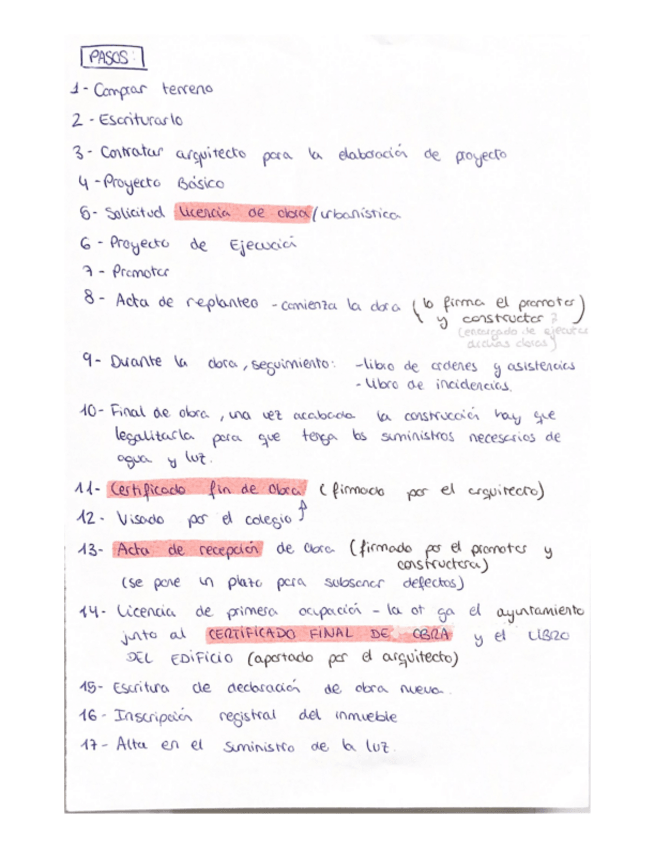 PASOS:
1- Comprar terreno
2 - Escriturarlo
3 - Contratar arquitecto para la elaboración de proyecto
4 - Proyecto Básico
5- Solicitud licencia de obra/urbanística
6 - Proyecto de Ejecución
7 - Promotor
8 - Acta de replanteo - comienza la obra (lo firma el promotor)
y constructor ?
(encargado de ejecutar
dichas obras)
9- Durante la obra, seguimiento: -libro de ordenes y asistencias
- Libro de incidencias.
10- Final de obra, una vez acabada la construcción hay que
legalitarla para que tenga los suministros necesarios de
agua y luz.
11- Certificado fin de Obra (firmado por el arquitecto)
12- Visado por el colegio ↑
13- Acta de recepción de Obra (firmado por el promotor y
constructora)
(se pone un plazo para subsanar defectos)
14- Licencia de primera ocupación - la ot ga el ayuntamiento
junto al CERTIFICADO FINAL DE OBRA y el LIBRO
DEL EDIFICIO (aportado por el arquitecto)
15- Escritura de declaración de obra nueva.
16 - Inscripción registral del inmueble
17- Alta en el suministro de la luz.